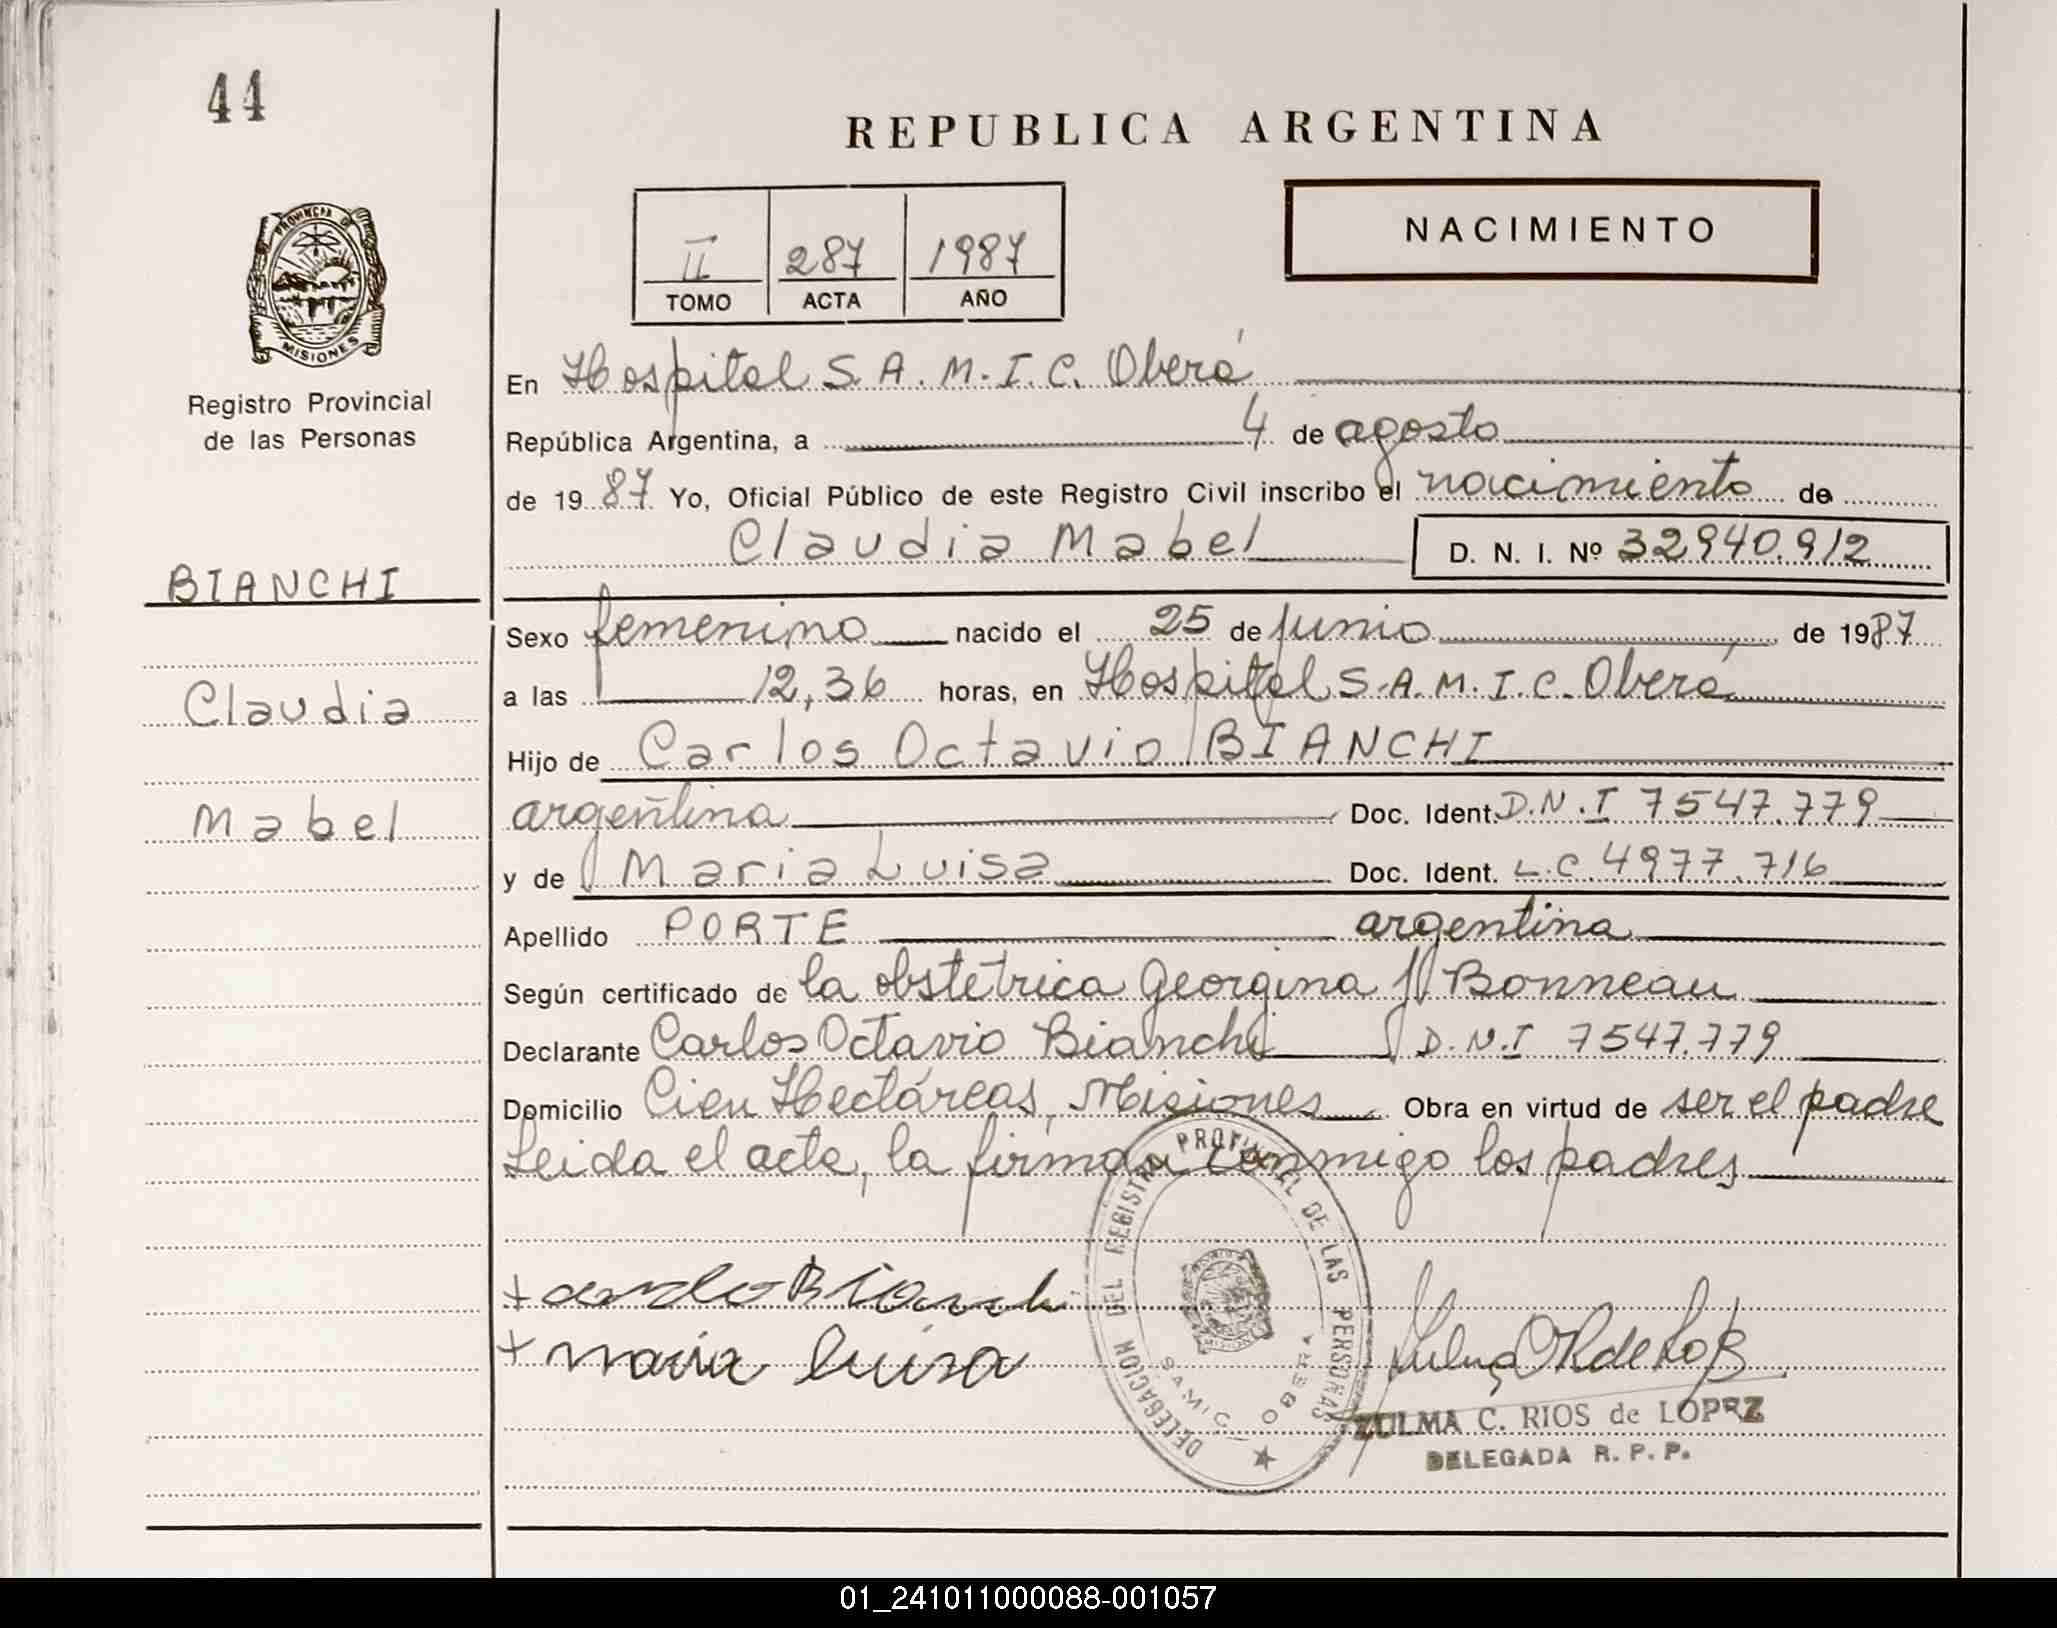 44
REPUBLICA ARGENTINA
NACIMIENTO
II 287 1987
TOMO ACTA AÑO
PROVINCIA D
MISIONES
Registro Provincial
de las Personas
En Hospital S.A.M.I.C. Oberá
República Argentina, a 4 de agosto
de 1987 Yo, Oficial Público de este Registro Civil inscribo el nacimiento de
Claudia Mabel D. N. I. Nº 32940.912
BIANCHI
Claudia
Mabel
Sexo femenino nacido el 25 de junio de 1987
a las 12,36 horas, en Hospital S.A.M.I.C. Oberá
Hijo de Carlos Octavio BIANCHI
argentina Doc. Ident. D.N.I 7547.779
y de Maria Luisa Doc. Ident. L.C. 4977.716
Apellido PORTE argentina
Según certificado de la obstetrica Georgina Bonneau
Declarante Carlos Octavio Bianchi D.N.I 7547.779
Domicilio Cien Hectáreas, Misiones Obra en virtud de ser el padre
Leida el acta, la firman conmigo los padres
DELEGACION DEL REGISTRO PROVINCIAL DE LAS PERSONAS
S.A.M.I.C. OBERA
maria luisa
ZULMA C. RIOS de LOPEZ
DELEGADA R. P. P.
01_241011000088-001057